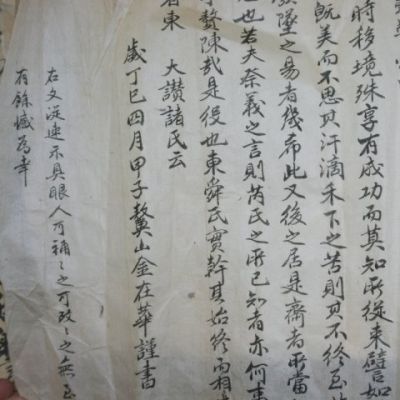 時移境殊享有成功而莫知所從來譬如
飫美而不思其汗滴禾下之苦則其不終至於
墜之易者幾希此又後之居是齋者所當
也若夫泰義之言則芮氏之所已知者亦何事
贅陳哉是役也東舜氏實幹其始終而相
者東 大讚諸氏云
歲丁巳四月甲子鰲山金在華謹書
右文淀速示具眼人可補〻之可改〻之無至
有餘憾為幸